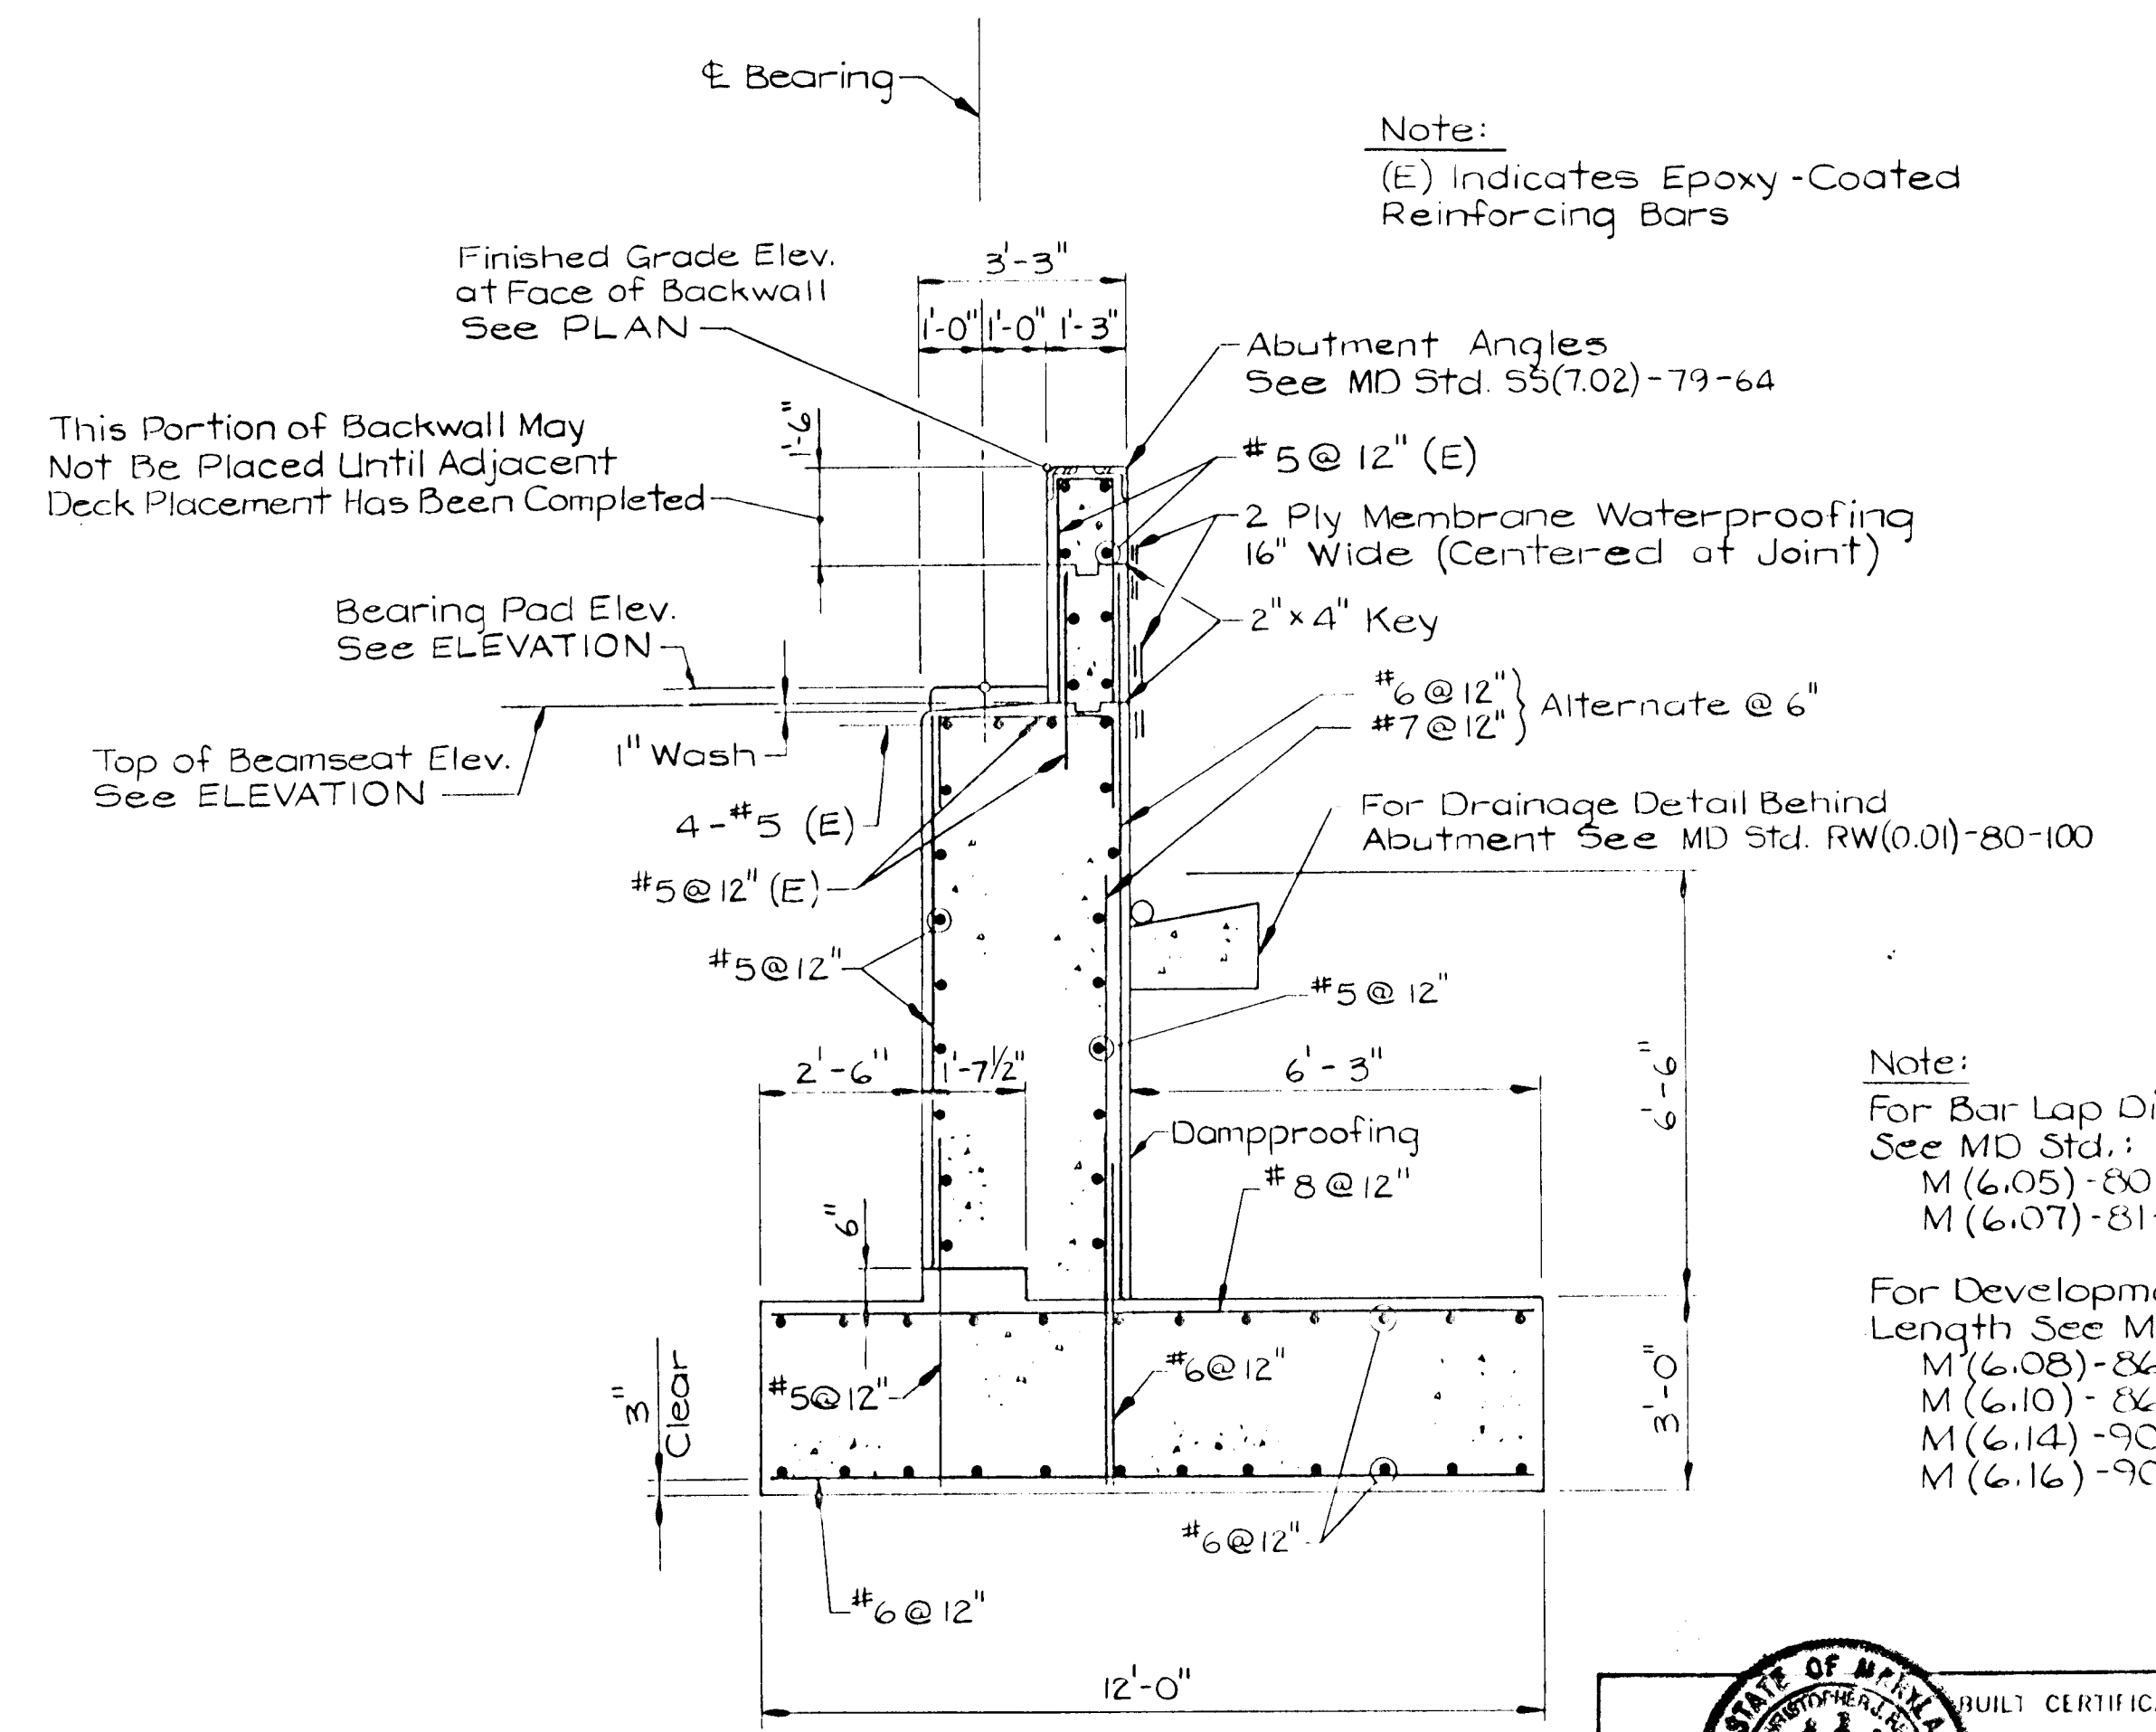 ℄ Bearing
Note:
(E) Indicates Epoxy-Coated
Reinforcing Bars
Finished Grade Elev.
at Face of Backwall
See PLAN
3'-3"
1'-0" 1'-0" 1'-3"
Abutment Angles
See MD Std. SS(7.02)-79-64
1'-6"
This Portion of Backwall May
Not Be Placed Until Adjacent
Deck Placement Has Been Completed
#5@12" (E)
2 Ply Membrane Waterproofing
16" Wide (Centered at Joint)
Bearing Pad Elev.
See ELEVATION
2"x4" Key
#6@12"
#7@12"
Alternate @ 6"
Top of Beamseat Elev.
See ELEVATION
1" Wash
4-#5 (E)
For Drainage Detail Behind
Abutment See MD Std. RW(0.01)-80-100
#5@12" (E)
#5@12"
#5@12"
2'-6"
1'-7½"
6'-3"
6'-6"
Note:
For Bar Lap Di
See MD Std.:
M(6.05)-80
M(6.07)-81-
Dampproofing
#8@12"
6"
For Developm
Length See M
M(6.08)-86
M(6.10)-86
M(6.14)-90
M(6.16)-90
3" Clear
#5@12"
#6@12"
3'-0"
#6@12"
#6@12"
12'-0"
STATE OF MARYLA
BUILT CERTIFIC